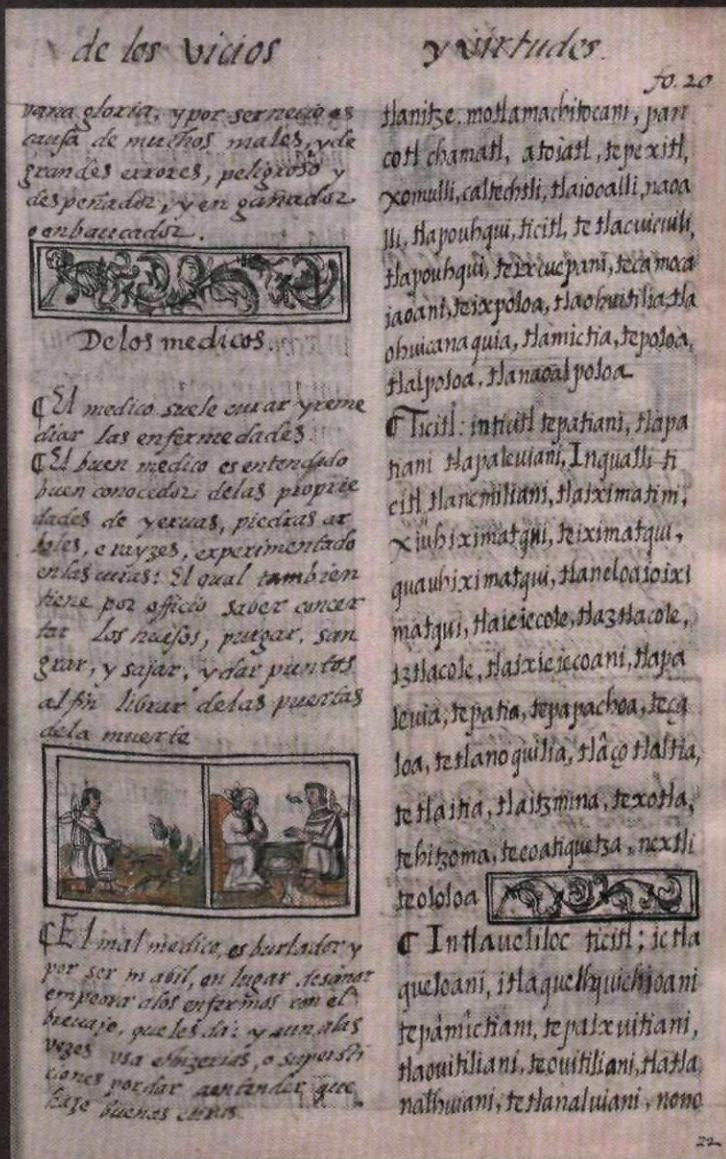 de los vicios
y virtudes.
fo. 20
vana gloria, y por ser necio es
causa de muchos males, y de
grandes errores, peligroso y
despeñador, y engañador
o enbaucador.
De los medicos.
¶ El medico suele curar y reme
diar las enfermedades.
¶ El buen medico es entendido
buen conocedor delas proprie
dades de yeruas, piedras ar
boles, e rayzes, experimentado
en las curas: El qual tambien
tiene por officio saber concer
tar los huesos, purgar, san
grar, y sajar, y dar puntos
al fin librar de las puertas
dela muerte
¶ El mal medico, es burlador y
por ser inabil, en lugar de sanar
empeora alos enfermos con el
breuaje, que les da: y aun alas
vezes vsa echizerias, o supersti
ciones por dar aentender que
haze buenas curas.
tlanitze. motlamachitocani, pan
cotl chamatl, atoiatl, tepexitl,
xomulli, caltechtli, tlaiooalli, naoa
lli, tlapouhqui, ticitl, tetlacuicuili,
tlapouhqui, teixcuepani, tecamaca
iaoani, teixpoloa, tlaohuitilia, tla
ohuicanaquia, tlamictia, tepoloa,
tlalpoloa, tlanaoalpoloa
¶ Ticitl: inticitl tepatiani, tlapa
tiani tlapaleuiani, Inqualli ti
citl tlanemiliani, tlaiximatini,
xiuhiximatqui, teiximatqui,
quauhiximatqui, tlaneloaioixi
matqui, tlaieiecole, tlaztlacole,
iztlacole, tlaixieiecoani, tlapa
leuia, tepatia, tepapachoa, teça
loa, tetlanoquilia, tlâçotlaltia,
tetlaitia, tlaitzmina, texotla,
tehitzoma, teeoatiquetza, nextli
teololoa
¶ Intlaueliloc ticitl; ictla
queloani, itlaquelhquichioani
tepâmictiani, tepaixuitiani,
tlaouitiliani, teouitiliani, tlatla
nalhuiani, tetlanaluiani, nono
22